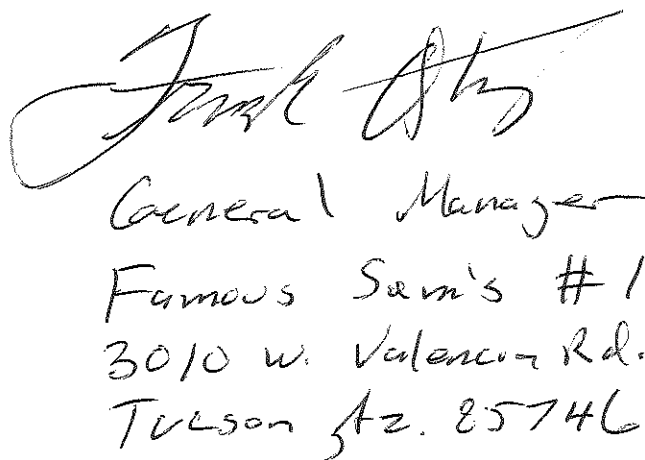 Frank
General Manager
Famous Sam's #1
3010 W. Valencia Rd.
Tucson, Az. 85746